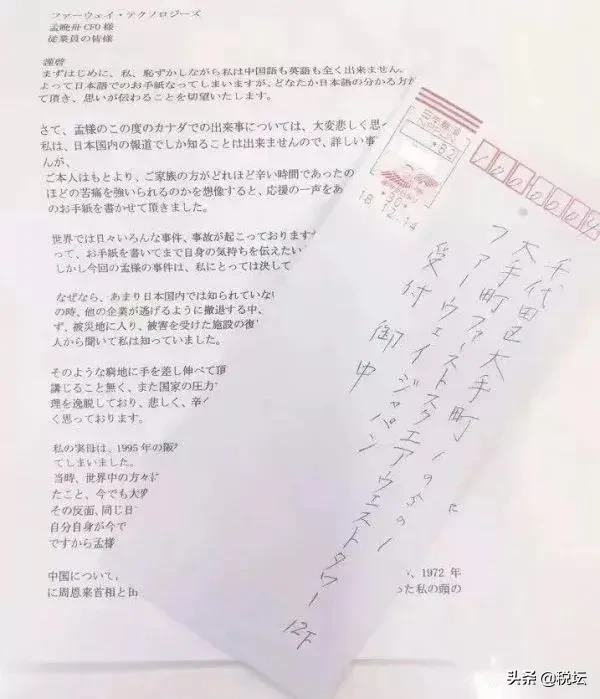 ファーウェイ・テクノロジーズ
孟晩舟 CFO 様
従業員の皆様
謹啓
まずはじめに、私、恥ずかしながら私は中国語も英語も全く出来ません。
よって日本語でのお手紙なってしまいますが、どなたか日本語の分かる方が
て頂き、思いが伝わることを切望いたします。
さて、孟様のこの度のカナダでの出来事については、大変悲しく思
私は、日本国内の報道でしか知ることは出来ませんので、詳しい事
んが、
ご本人はもとより、ご家族の方がどれほど辛い時間であったの
ほどの苦痛を強いられるのかを想像すると、応援の一声をあ
のお手紙を書かせて頂きました。
世界では日々いろんな事件、事故が起こっております
って、お手紙を書いてまで自身の気持ちを伝えたい
しかし今回の孟様の事件は、私にとっては決して
なぜなら、あまり日本国内では知られていな
の時、他の企業が逃げるように撤退する中、
ず、被災地に入り、被害を受けた施設の復
人から聞いて私は知っていました。
そのような窮地に手を差し伸べて頂
講じること無く、また国家の圧力
理を逸脱しており、悲しく、辛
く思っております。
私の実母は、1995年の阪
てしまいました。
当時、世界中の方々が
たこと、今でも大変
その反面、同じ日
自分自身が今で
ですから孟様
中国について、
、1972 年
に周恩来首相と田
った私の頭の
82
18.12.14
千代田区大手町
大手町ファーストスクエアウェストタワー 12F
ファーウェイジャパン
受付 御中
头条 @税坛